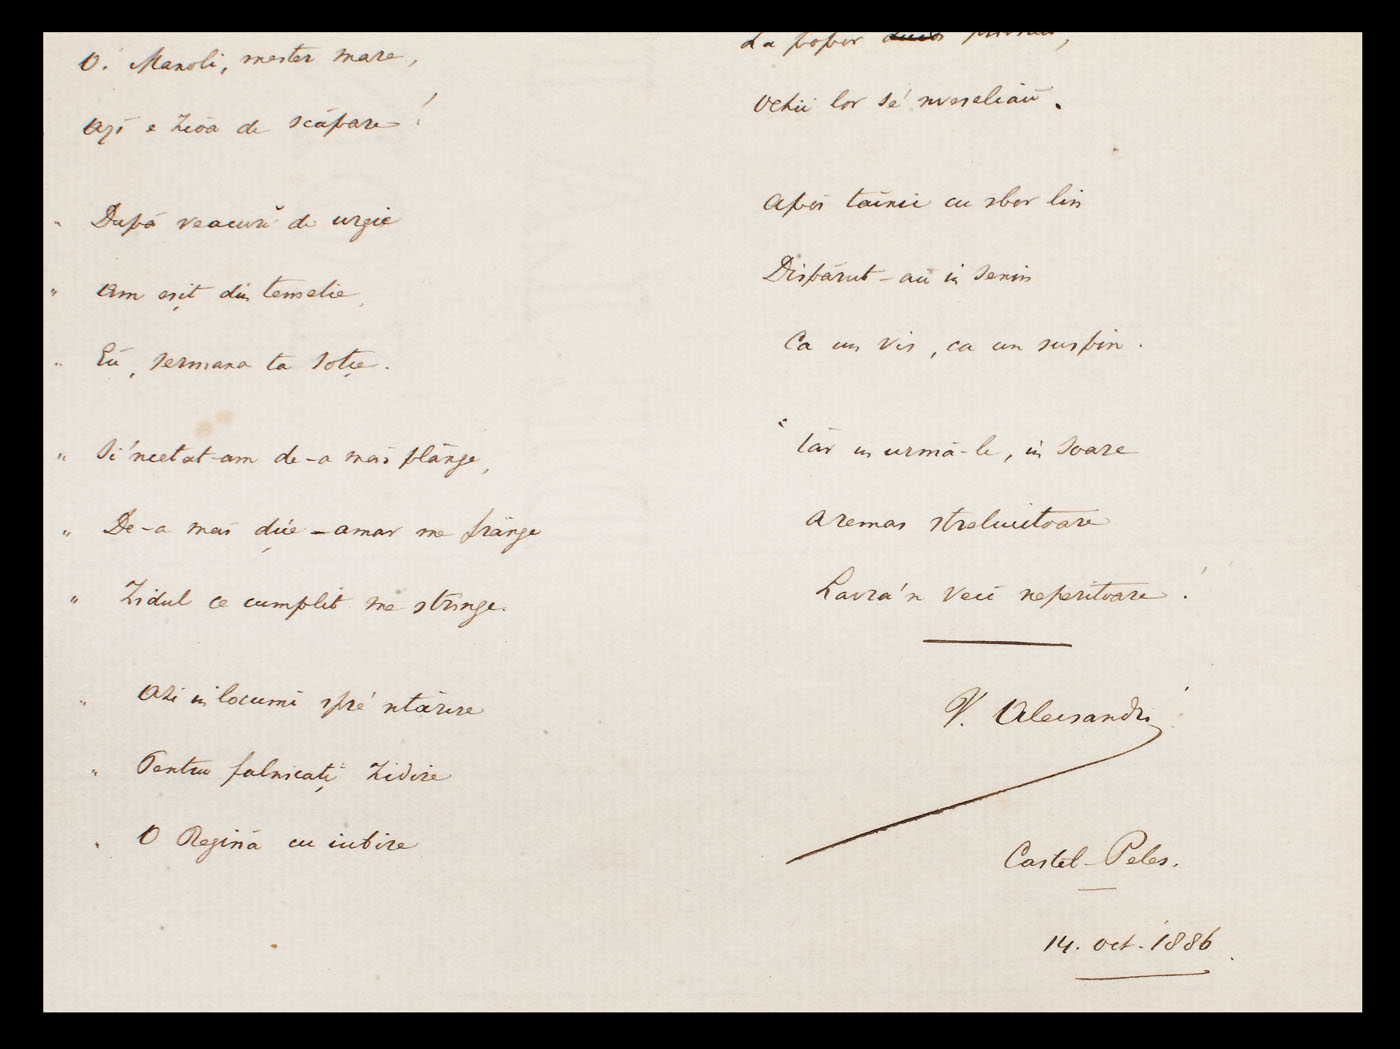 O. Manoli, mester mare,
Azi e zioa de scăpare!
" După veacuri de urgie
" Am eșit din temelie
" Eŭ, sermana ta soție.
" Si'ncetat-am de-a mai plânge,
" De-a mai dice - amar me frânge
" Zidul ce cumplit me strînge.
" Azi in locumi spre'ntărire
" Pentru falnicați zidire
" O Regină cu iubire
La popor privĭau,
Ochii lor se'nveseliaŭ.
Apoi tainic cu sbor lin
Dispărut-aŭ in senin
Ca un vis, ca un suspin.
Iar in urmă-le, in soare
A remas strelucitoare
Lavra'n veci neperitoare!
V. Alecsandri
Castel-Peles.
14. oct. 1886.